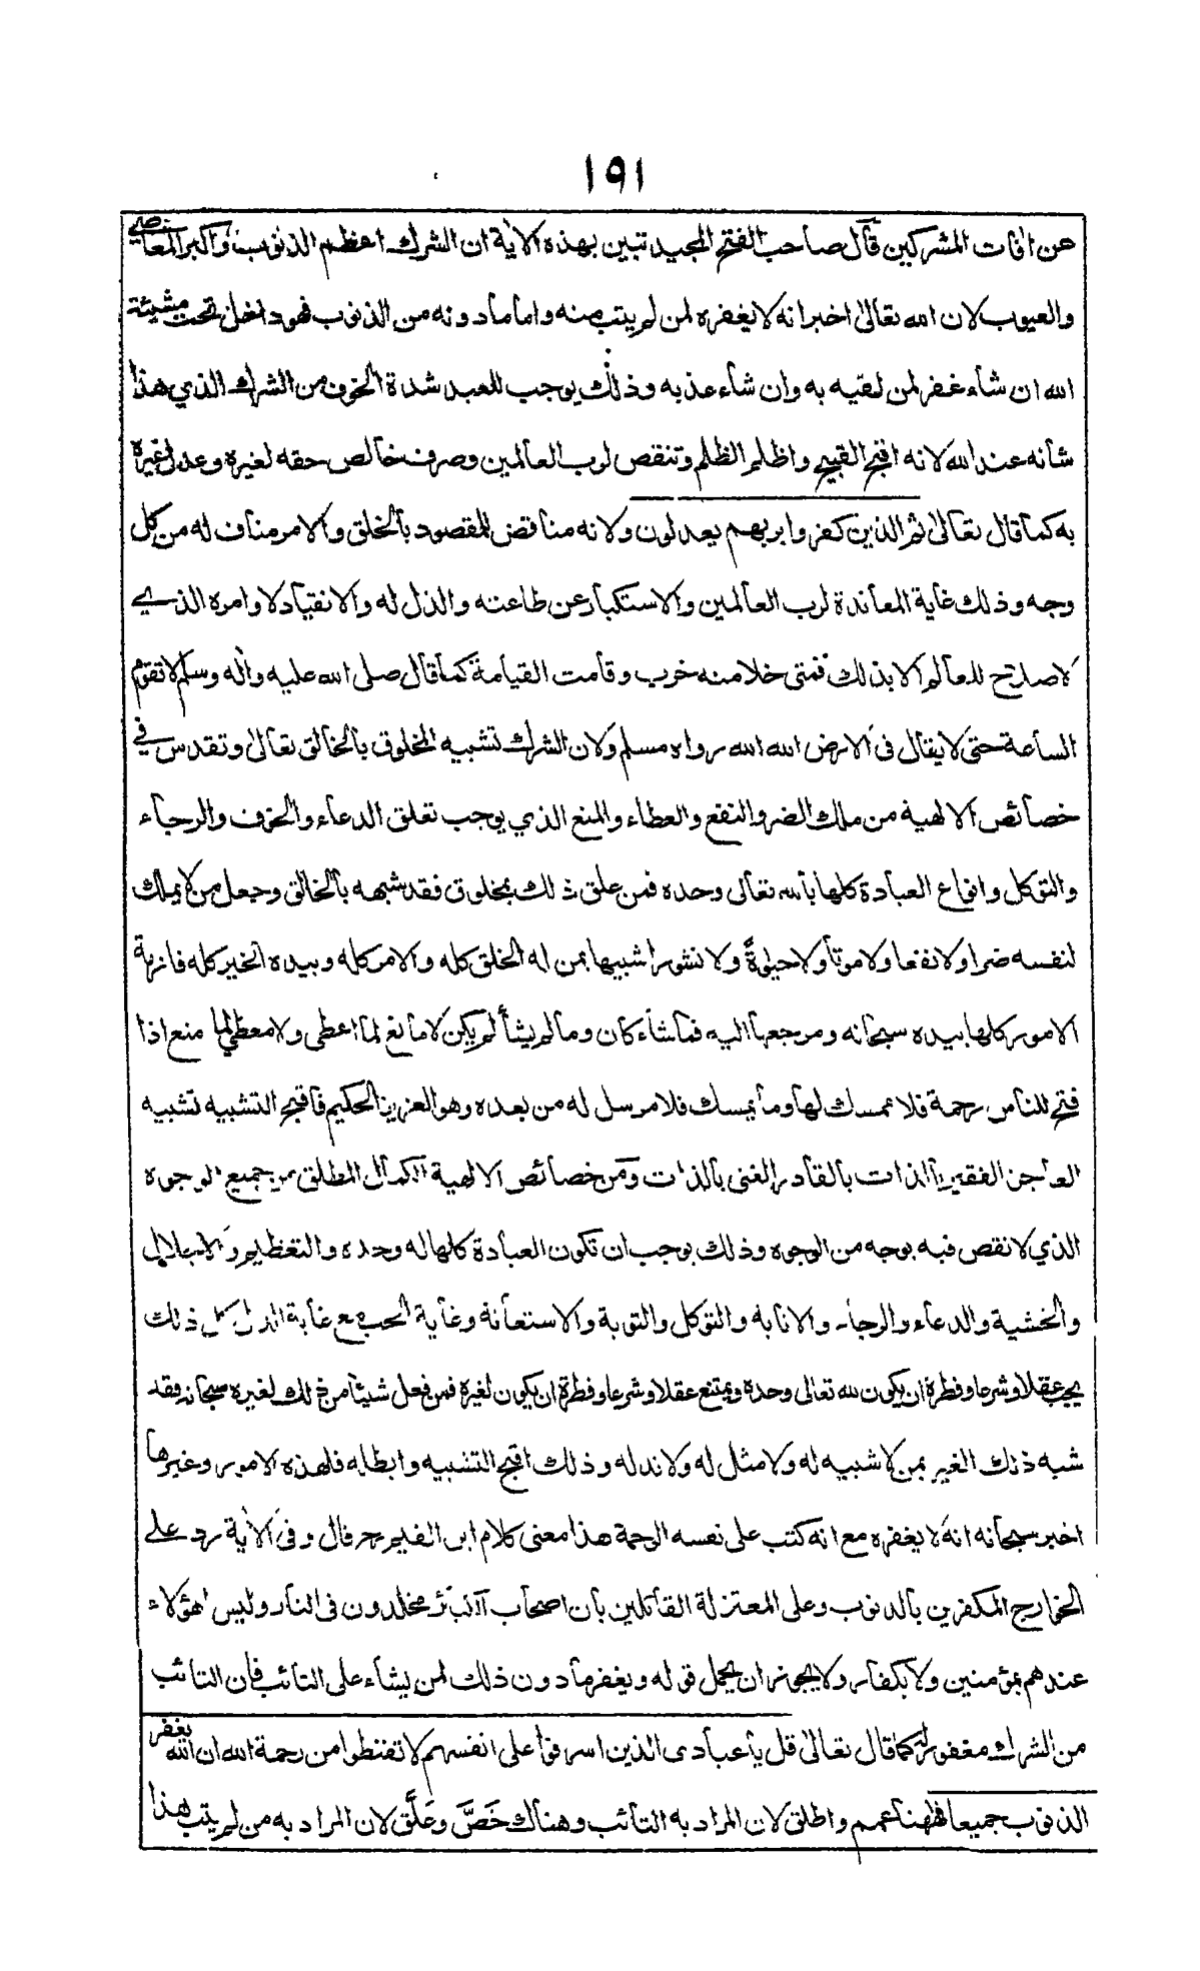 ١٩١
عن افات المشركين قال صاحب الفتح المجيد تبين بهذه الاية ان الشرك اعظم الذنوب واكبر المعاصي
والعيوب لان الله تعالى اخبر انه لا يغفره لمن لم يتب منه واما ما دونه من الذنوب فهو داخل تحت مشيئة
الله ان شاء غفر لمن لقيه به وان شاء عذبه وذلك يوجب للعبد شدة الخوف من الشرك الذي هذا
شانه عند الله لانه اقبح القبيح واظلم الظلم وتنقص لرب العالمين وصرف خالص حقه لغيره وعدل غيره
به كما قال تعالى ثم الذين كفروا بربهم يعدلون ولانه مناقض للمقصود بالخلق والامر مناف له من كل
وجه وذلك غاية المعاندة لرب العالمين والاستكبار عن طاعته والذل له والانقياد لاوامره الذي
لا صلاح للعالم الا بذلك فمتى خلا منه خرب وقامت القيامة كما قال صلى الله عليه واله وسلم لا تقوم
الساعة حتى لا يقال فى الارض الله الله رواه مسلم ولان الشرك تشبيه المخلوق بالخالق تعالى وتقدس في
خصائص الالهية من ملك الضر والنفع والعطاء والمنع الذي يوجب تعلق الدعاء والخوف والرجاء
والتوكل وانواع العبادة كلها بالله تعالى وحده فمن علق ذلك بمخلوق فقد شبهه بالخالق وجعل من لا يملك
لنفسه ضرا ولا نفعا ولا موتا ولا حيٰوةً ولا نشورا شبيها بمن له الخلق كله والامر كله وبيده الخير كله فازمة
الامور كلها بيده سبحانه ومرجعها اليه فما شاء كان وما لم يشأ لم يكن لا مانع لما اعطى ولا معطي لما منع اذا
فتح للناس رحمة فلا ممسك لها وما يمسك فلا مرسل له من بعده وهو العزيز الحكيم فاقبح التشبيه تشبيه
العاجز الفقير بالذات بالقادر الغنى بالذات ومن خصائص الالهية الكمال المطلق من جميع الوجوه
الذي لا نقص فيه بوجه من الوجوه وذلك يوجب ان تكون العبادة كلها له وحده والتعظيم والاجلال
والخشية والدعاء والرجاء والانابة والتوكل والتوبة والاستعانة وغاية الحب مع غاية الذل كل ذلك
يجب عقلا وشرعا وفطرة ان يكون لله تعالى وحده ويمتنع عقلا وشرعا وفطرة ان يكون لغيره فمن فعل شيئا من ذلك لغيره سبحانه فقد
شبه ذلك الغير بمن لا شبيه له ولا مثل له ولا ند له وذلك اقبح التشبيه وابطله فلهذه الامور وغيرها
اخبر سبحانه انه لا يغفره مع انه كتب على نفسه الرحمة هذا معنى كلام ابن القيم رح قال وفى الاية رد على
الخوارج المكفرين بالذنوب وعلى المعتزلة القائلين بان اصحاب الكبائر مخلدون فى النار وليس هؤلاء
عندهم بمؤمنين ولا بكفار ولا يجوز ان يحمل قوله ويغفر ما دون ذلك لمن يشاء على التائب فان التائب
من الشرك مغفور له كما قال تعالى قل يا عبادى الذين اسرفوا على انفسهم لا تقنطوا من رحمة الله ان الله يغفر
الذنوب جميعا فههنا عمم واطلق لان المراد به التائب وهناك خَصَّ وعَلَّق لان المراد به من لم يتب هذا